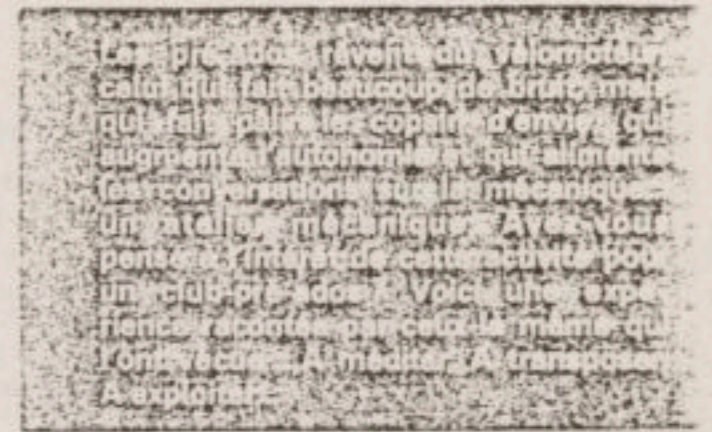 Les pré-ados rêvent du vélomoteur
celui qui fait beaucoup de bruit, mais
qui fait pâlir les copains d'envie, qui
augmente l'autonomie et qui alimente
les conversations sur la mécanique.
Un atelier mécanique ? Avez-vous
pensé à l'intérêt de cette activité pour
un club pré-ados ? Voici une expé-
rience racontée par ceux-là même qui
l'ont A méditer. A transposer.
A exploiter.